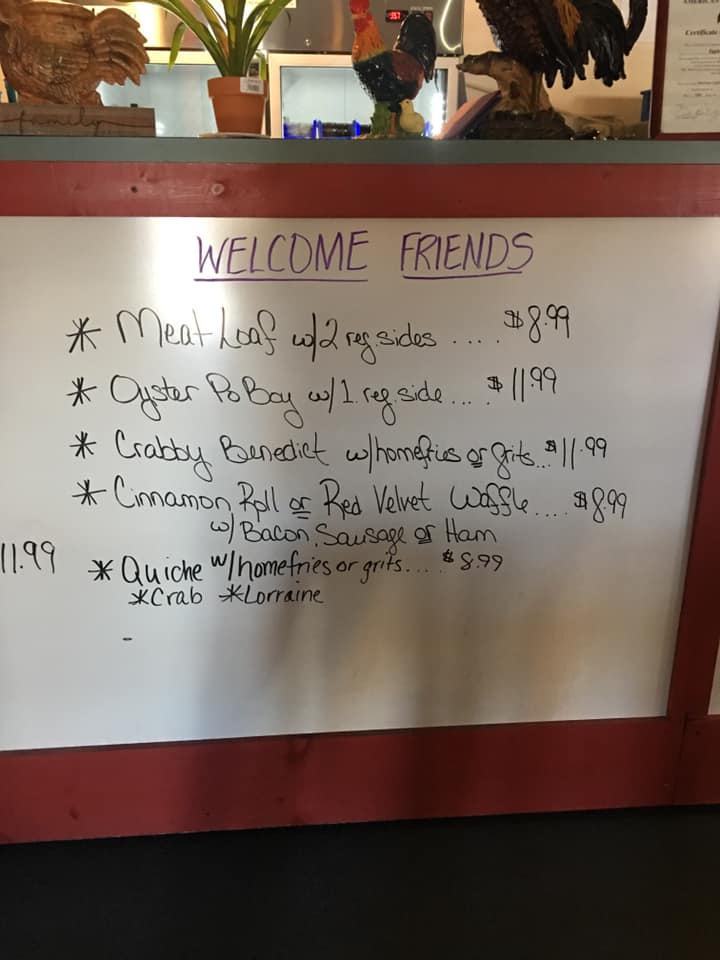 WELCOME FRIENDS
* Meat Loaf w/2 reg. sides .... $8.99
* Oyster Po Boy w/1. reg. side... $11.99
* Crabby Benedict w/homefries or grits.. $11.99
* Cinnamon Roll or Red Velvet Waffle.... $8.99
w/ Bacon, Sausage or Ham
11.99
* Quiche w/homefries or grits... $8.99
*Crab *Lorraine
-
Certificate